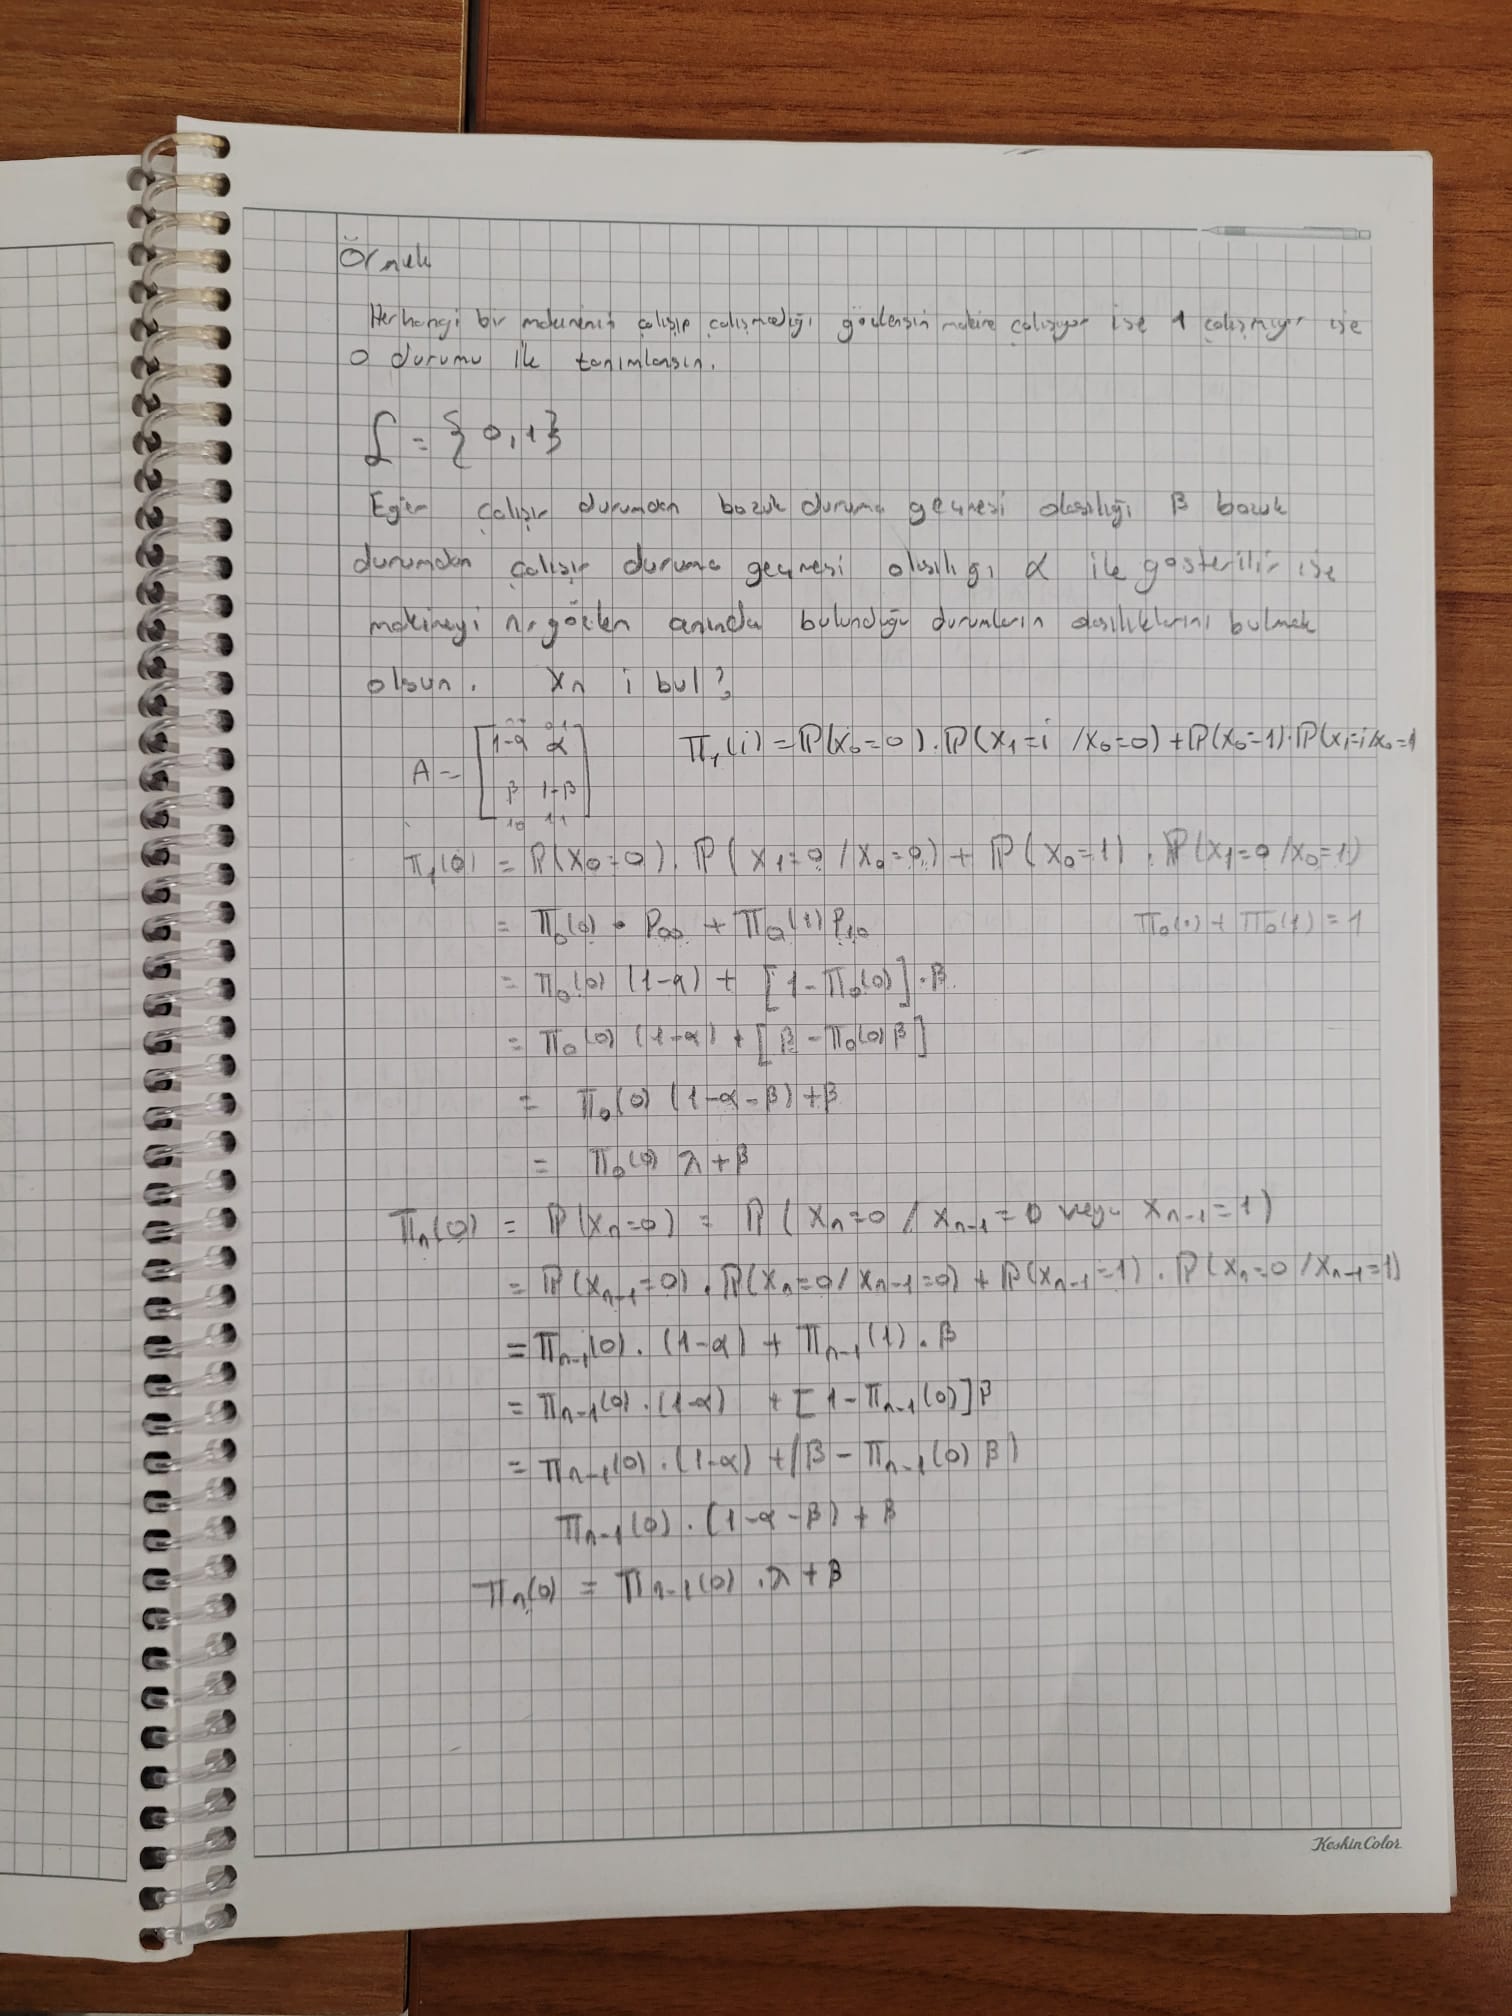 Örnek
Herhangi bir makinenin çalışıp çalışmadığı gözlensin makine çalışıyor ise 1 çalışmıyor ise
0 durumu ile tanımlansın.
S = { 0, 1 }
Eğer çalışır durumdan bozuk duruma geçmesi olasılığı β bozuk
durumdan çalışır duruma geçmesi olasılığı α ile gösterilir ise
makineyi n. gözlem anında bulunduğu durumların olasılıklarını bulmak
olsun. Xn i bul?
A = [ 1-α α
β 1-β ]
10 11
π₁(i) = P(X₀=0) . P(X₁=i /X₀=0) + P(X₀=1) . P(X₁=i/X₀=1
π₁(0) = P(X₀=0) . P( X₁=0 /X₀=0) + P( X₀=1) . P(X₁=0 /X₀=1)
= π₀(0) • P₀₀ + π₀(1) P₁₀ π₀(0) + π₀(1) = 1
= π₀(0) (1-α) + [1-π₀(0)] . β
= π₀(0) (1-α) + [β - π₀(0) β]
= π₀(0) (1-α-β) + β
= π₀(0) λ + β
πn(0) = P(Xn=0) = P( Xn=0 / Xn-1=0 veya Xn-1=1)
= P(Xn-1=0) . P(Xn=0/Xn-1=0) + P(Xn-1=1) . P(Xn=0/Xn-1=1)
= πn-1(0) . (1-α) + πn-1(1) . β
= πn-1(0) . (1-α) + [1-πn-1(0)] β
= πn-1(0) . (1-α) + (β - πn-1(0) β)
πn-1(0) . (1-α-β) + β
πn(0) = πn-1(0) . λ + β
KeskinColor